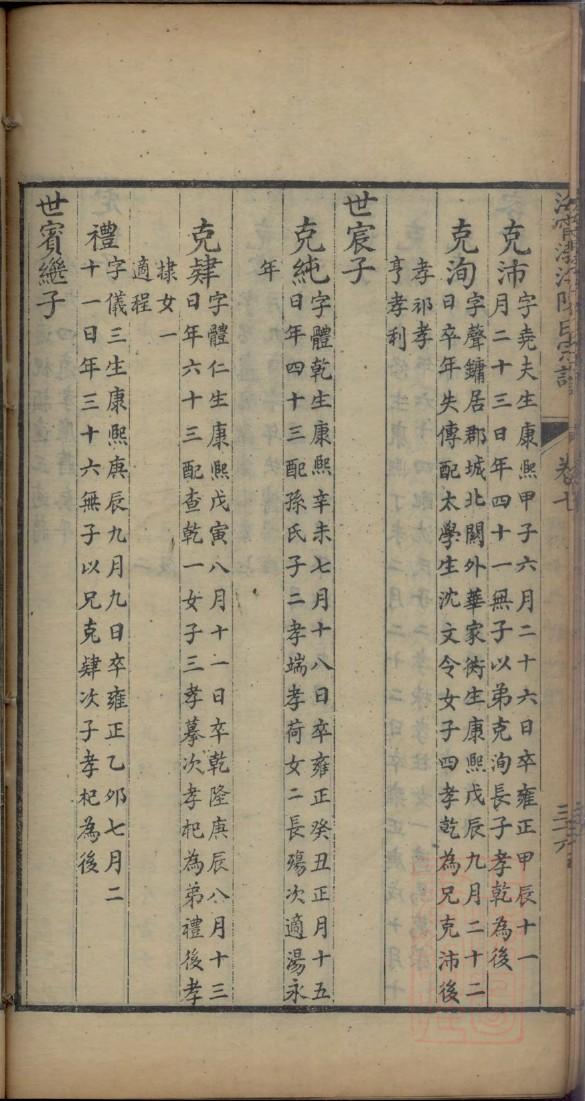 克沛
字堯夫生康熙甲子六月二十六日卒雍正甲辰十一
月二十三日年四十一無子以弟克洵長子孝乾為後
克洵
字聲鏞居郡城北關外華家衖生康熙戊辰九月二十二
日卒年失傳配太學生沈文令女子四孝乾為兄克沛後
孝祁孝
亨孝利
世宸子
克純
字體乾生康熙辛未七月十八日卒雍正癸丑正月十五
日年四十三配孫氏子二孝端孝荷女二長殤次適湯永
年
克肄
字體仁生康熙戊寅八月十一日卒乾隆庚辰八月十三
日年六十三配查乾一女子三孝摹次孝杞為弟禮後孝
棣女一
適程
禮
字儀三生康熙庚辰九月九日卒雍正乙卯七月二
十一日年三十六無子以兄克肄次子孝杞為後
世賓繼子
卷七
三六